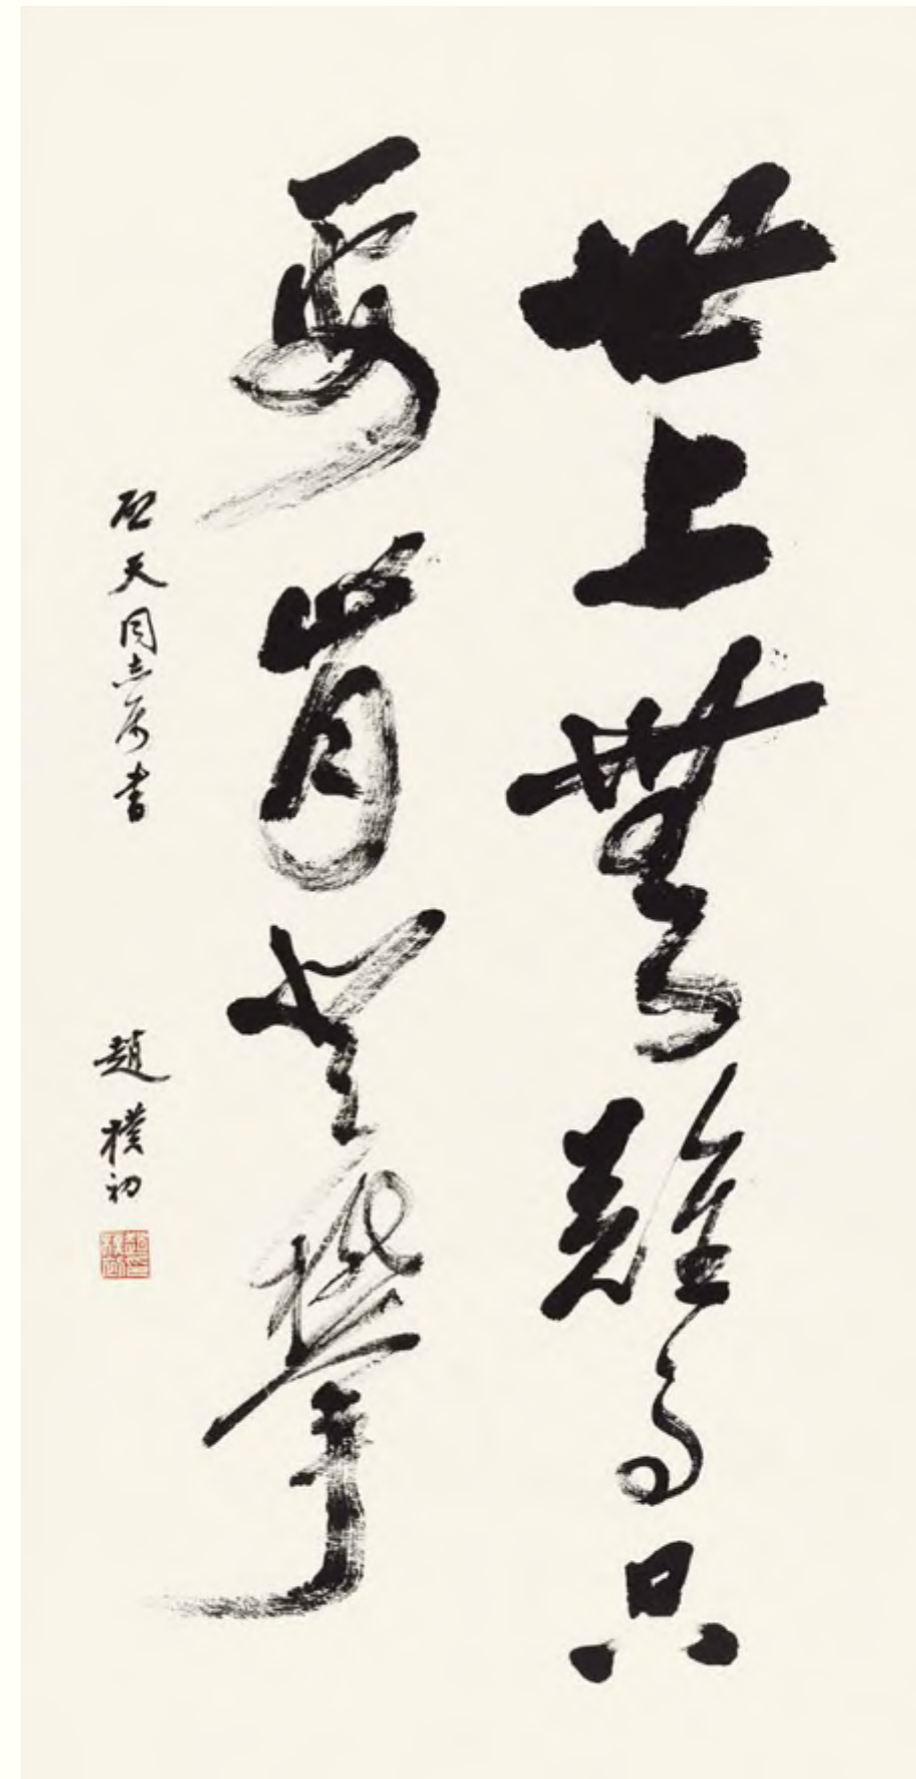 世上無難事只
要肯登攀
啟天同志属書
趙樸初